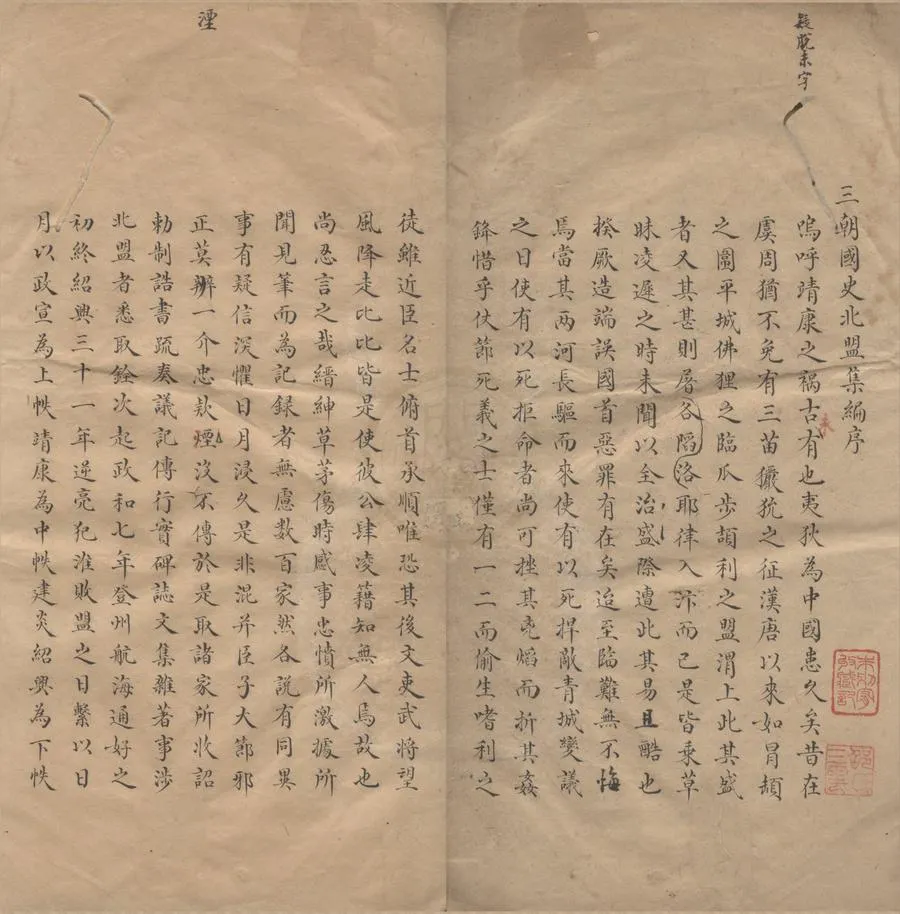 疑脱未字
三朝國史北盟集編序
嗚呼靖康之禍古有也夷狄為中國患久矣昔在
未
虞周猶不免有三苗玁狁之征漢唐以來如冒頓
之圍平城佛狸之臨瓜步頡利之盟渭上此其盛
者又其甚則屠各陷洛耶律入汴而已是皆乗草
昧凌遲之時未聞以全治盛際遭此其易且酷也
揆厥造端誤國首惡罪有在矣迨至臨難無不悔
焉當其两河長驅而來使有以死捍敵青城變議
之日使有以死拒命者尚可挫其兇熖而折其姦
鋒惜乎仗節死義之士僅有一二而偷生嗜利之
湮
徒雖近臣名士俯首承順唯恐其後文吏武將望
風降走比比皆是使彼公肆凌籍知無人焉故也
尚忍言之哉縉紳草茅傷時感事忠憤所激據所
聞見筆而為記録者無慮数百家然各説有同異
事有疑信深懼日月浸久是非混并臣子大節邪
正莫辨一介忠款煙没不傳於是取諸家所收詔
勅制誥書疏奏議記傳行實碑誌文集雜著事涉
北盟者悉取銓次起政和七年登州航海通好之
初終紹興三十一年逆亮犯淮敗盟之日繫以日
月以政宣為上帙靖康為中帙建炎紹興為下帙